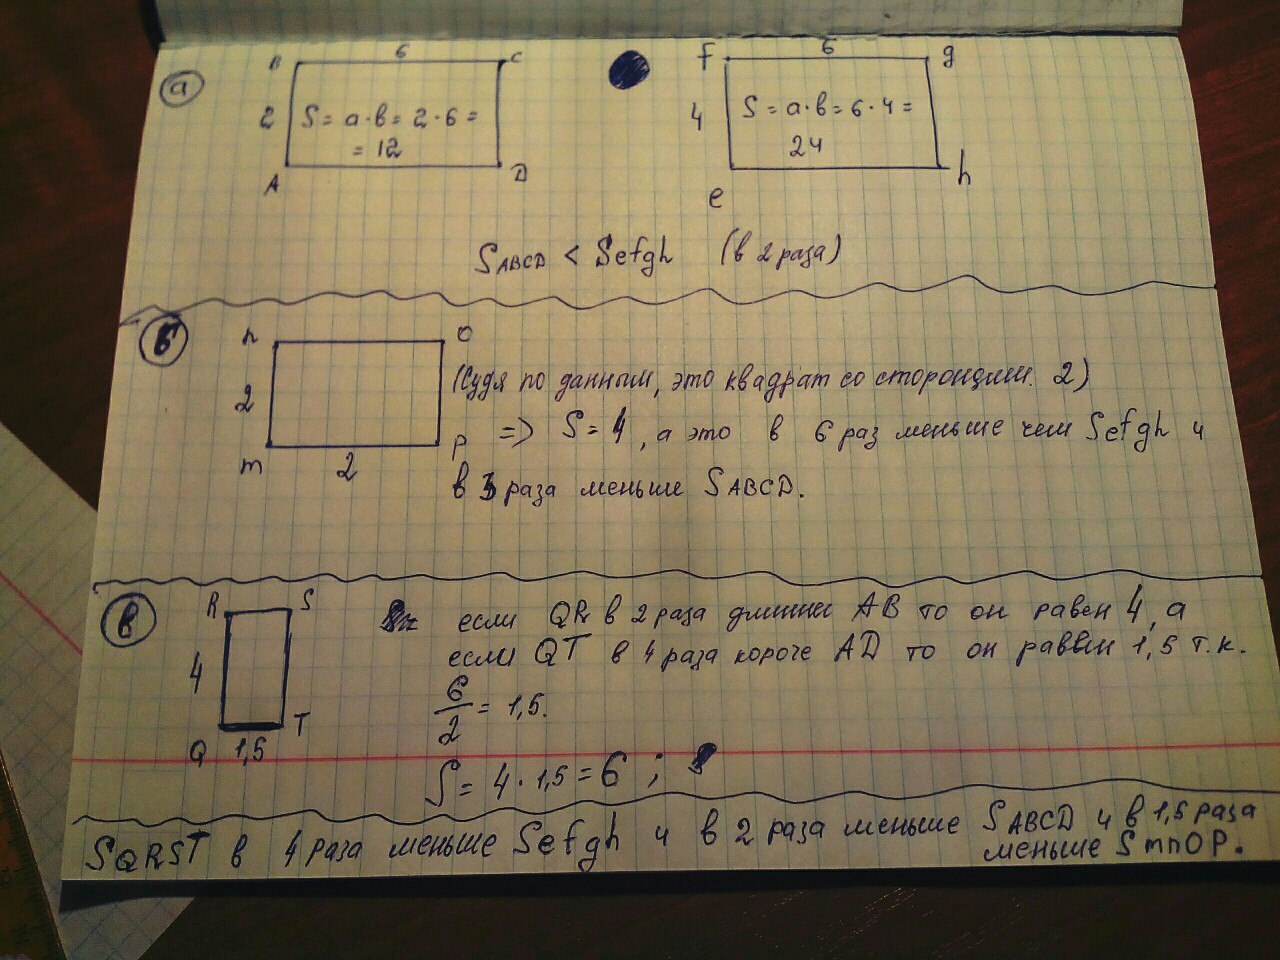 а
B 6 C
2 S = a · в = 2 · 6 =
= 12
A D
f 6 g
4 S = a · в = 6 · 4 =
24
e h
SABCD < Sefgh (в 2 раза)
б
n O
2 (Судя по данным, это квадрат со сторонами 2)
m 2 P => S = 4, а это в 6 раз меньше чем Sefgh и
в 3 раза меньше SABCD.
в
R S если QR в 2 раза длиннее AB то он равен 4, а
4 если QT в 4 раза короче AD то он равен 1,5 т.к.
6/2 = 1,5.
Q 1,5 T
S = 4 · 1,5 = 6 ;
SQRST в 4 раза меньше Sefgh и в 2 раза меньше SABCD и в 1,5 раза
меньше SmnOP.